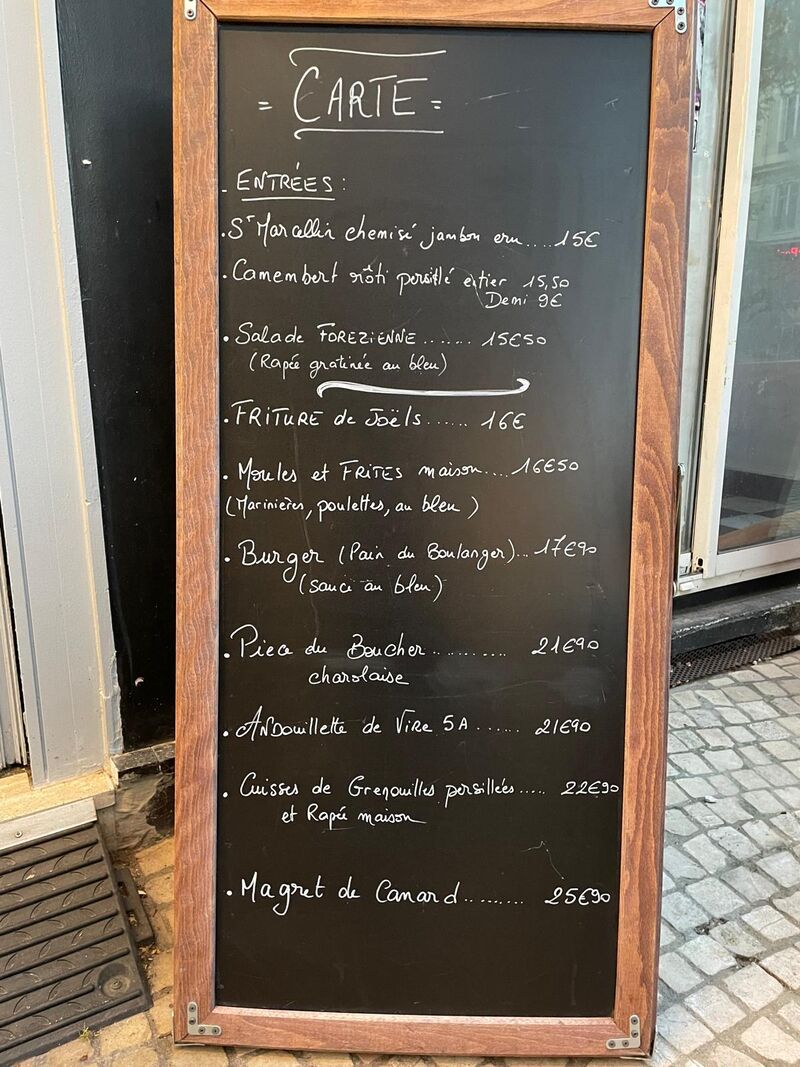 = CARTE =
- ENTRÉES :
. St Marcellin chemisé jambon cru .... 15€
. Camembert rôti persillé entier 15,50
Demi 9€
. Salade FOREZIENNE ....... 15€50
(Rapée gratinée au bleu)
. FRITURE de Joëls ...... 16€
. Moules et FRITES maison .... 16€50
(Marinières, poulettes, au bleu)
. Burger (Pain du Boulanger) ... 17€90
(Sauce au bleu)
. Piece du Boucher .......... 21€90
charolaise
. ANDouillette de Vire 5A ...... 21€90
. Cuisses de Grenouilles persillées ..... 22€90
et Rapée maison
. Magret de Canard ........ 25€90